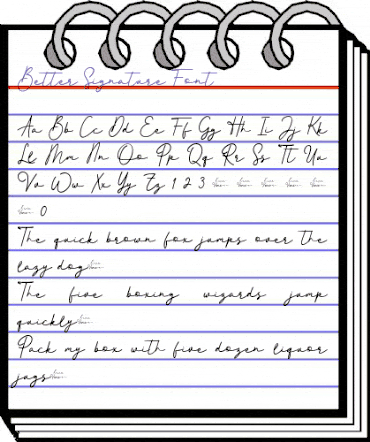 Better Signature Font
Aa Bb Cc Dd Ee Ff Gg Hh Ii Jj Kk
Ll Mm Nn Oo Pp Qq Rr Ss Tt Uu
Vv Ww Xx Yy Zz 1 2 3
0
The quick brown fox jumps over the
lazy dog
The five boxing wizards jump
quickly
Pack my box with five dozen liquor
jugs